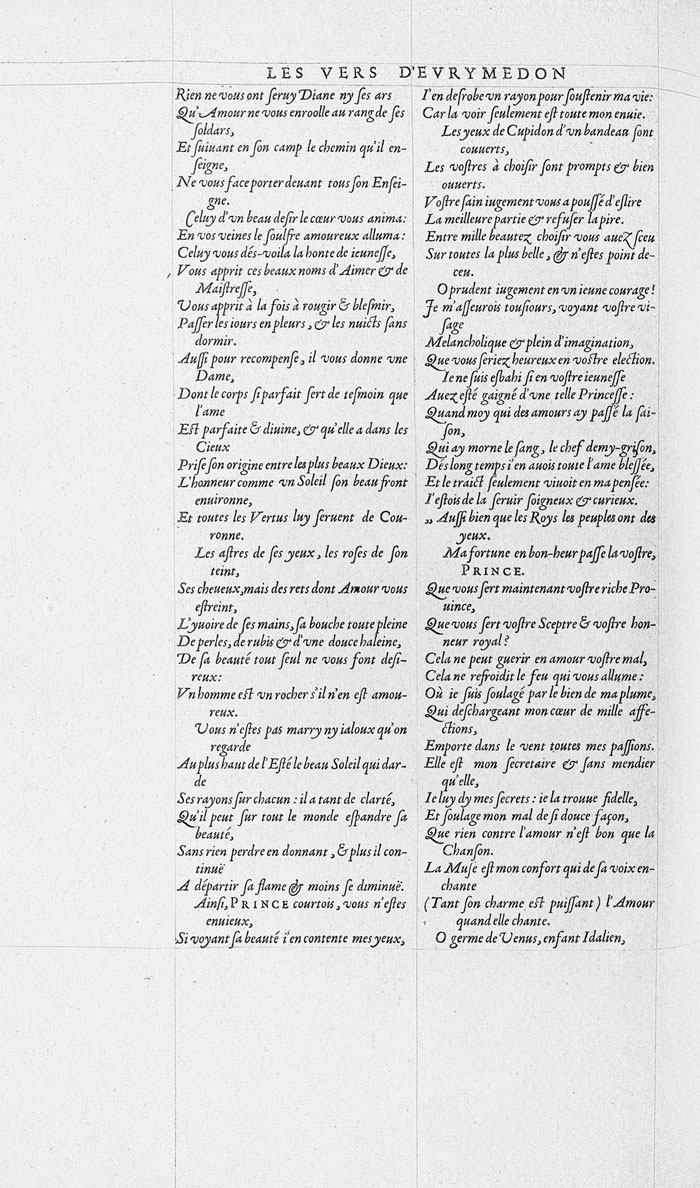 LES VERS D'EVRYMEDON
Rien ne vous ont ſeruy Diane ny ſes ars
Qu'Amour ne vous enroolle au rang de ſes
ſoldars,
Et ſuiuant en ſon camp le chemin qu'il en-
ſeigne,
Ne vous face porter deuant tous ſon Enſei-
gne.
Celuy d'vn beau deſir le cœur vous anima:
En vos veines le ſoulfre amoureux alluma:
Celuy vous dés-voila la honte de ieuneſſe,
Vous apprit ces beaux noms d'Aimer & de
Maiſtreſſe,
Vous apprit à la fois à rougir & bleſmir,
Paſſer les iours en pleurs, & les nuicts ſans
dormir.
Auſſi pour recompenſe, il vous donne vne
Dame,
Dont le corps ſi parfait ſert de teſmoin que
l'ame
Eſt parfaite & diuine, & qu'elle a dans les
Cieux
Priſe ſon origine entre les plus beaux Dieux:
L'honneur comme vn Soleil ſon beau front
enuironne,
Et toutes les Vertus luy ſeruent de Cou-
ronne.
Les aſtres de ſes yeux, les roſes de ſon
teint,
Ses cheueux, mais des rets dont Amour vous
eſtreint,
L'yuoire de ſes mains, ſa bouche toute pleine
De perles, de rubis & d'vne douce haleine,
De ſa beauté tout ſeul ne vous font deſi-
reux:
Vn homme eſt vn rocher s'il n'en eſt amou-
reux.
Vous n'eſtes pas marry ny ialoux qu'on
regarde
Au plus haut de l'Eſté le beau Soleil qui dar-
de
Ses rayons ſur chacun: il a tant de clarté,
Qu'il peut ſur tout le monde eſpandre ſa
beauté,
Sans rien perdre en donnant, & plus il con-
tinuë
A départir ſa flame & moins ſe diminuë.
Ainſi, PRINCE courtois, vous n'eſtes
enuieux,
Si voyant ſa beauté i'en contente mes yeux,
I'en deſrobe vn rayon pour ſouſtenir ma vie:
Car la voir ſeulement eſt toute mon enuie.
Les yeux de Cupidon d'vn bandeau ſont
couuerts,
Les voſtres à choiſir ſont prompts & bien
ouuerts.
Voſtre ſain iugement vous a pouſſé d'eſlire
La meilleure partie & refuſer la pire.
Entre mille beautez choiſir vous auez ſceu
Sur toutes la plus belle, & n'eſtes point de-
ceu.
O prudent iugement en vn ieune courage!
Je m'aſſeurois touſiours, voyant voſtre vi-
ſage
Melancholique & plein d'imagination,
Que vous ſeriez heureux en voſtre election.
Ie ne ſuis eſbahi ſi en voſtre ieuneſſe
Auez eſté gaigné d'vne telle Princeſſe:
Quand moy qui des amours ay paſſé la ſai-
ſon,
Qui ay morne le ſang, le chef demy-griſon,
Dés long temps i'en auois toute l'ame bleſſée,
Et le traict ſeulement viuoit en ma penſée:
I'eſtois de la ſeruir ſoigneux & curieux.
„ Auſſi bien que les Roys les peuples ont des
yeux.
Ma fortune en bon-heur paſſe la voſtre,
PRINCE.
Que vous ſert maintenant voſtre riche Pro-
uince,
Que vous ſert voſtre Sceptre & voſtre hon-
neur royal?
Cela ne peut guerir en amour voſtre mal,
Cela ne refroidit le feu qui vous allume:
Où ie ſuis ſoulagé par le bien de ma plume,
Qui deſchargeant mon cœur de mille affe-
ctions,
Emporte dans le vent toutes mes paſſions.
Elle eſt mon ſecretaire & ſans mendier
qu'elle,
Ie luy dy mes ſecrets: ie la trouue fidelle,
Et ſoulage mon mal de ſi douce façon,
Que rien contre l'amour n'eſt bon que la
Chanſon.
La Muſe eſt mon confort qui de ſa voix en-
chante
(Tant ſon charme eſt puiſſant) l'Amour
quand elle chante.
O germe de Venus, enfant Idalien,